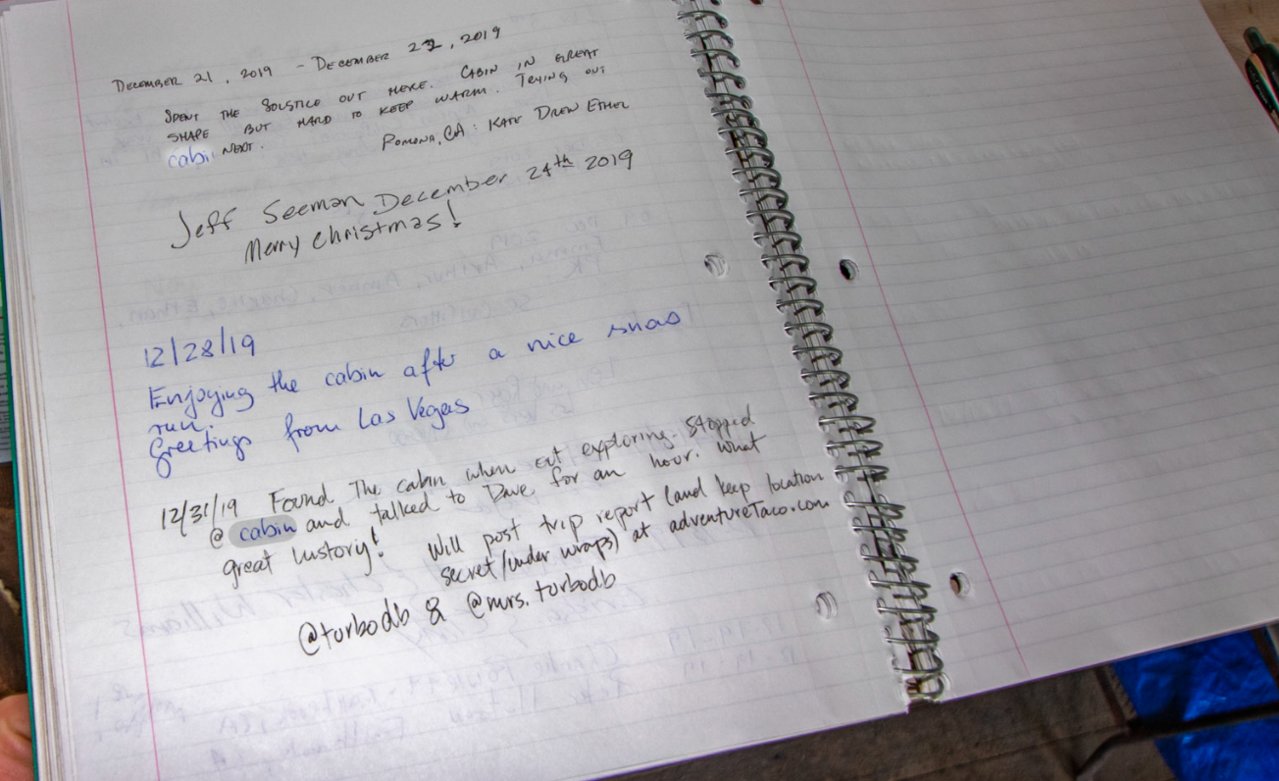 DECEMBER 21, 2019 - DECEMBER 22, 2019
SPENT THE SOLSTICE OUT HERE. CABIN IN GREAT
SHAPE BUT HARD TO KEEP WARM. TRYING OUT
cabin NEXT.
POMONA, CA: KATE DREW ETHEL
Jeff Seeman December 24th 2019
Merry Christmas!
12/28/19
Enjoying the cabin after a nice
run.
Greetings from Las Vegas
12/31/19 Found The cabin when out exploring. Stopped
@ cabin and talked to Dave for an hour. What
great history!
Will post trip report (and keep location
secret/under wraps) at adventureTaco.com
@turbodb & @mrs.turbodb